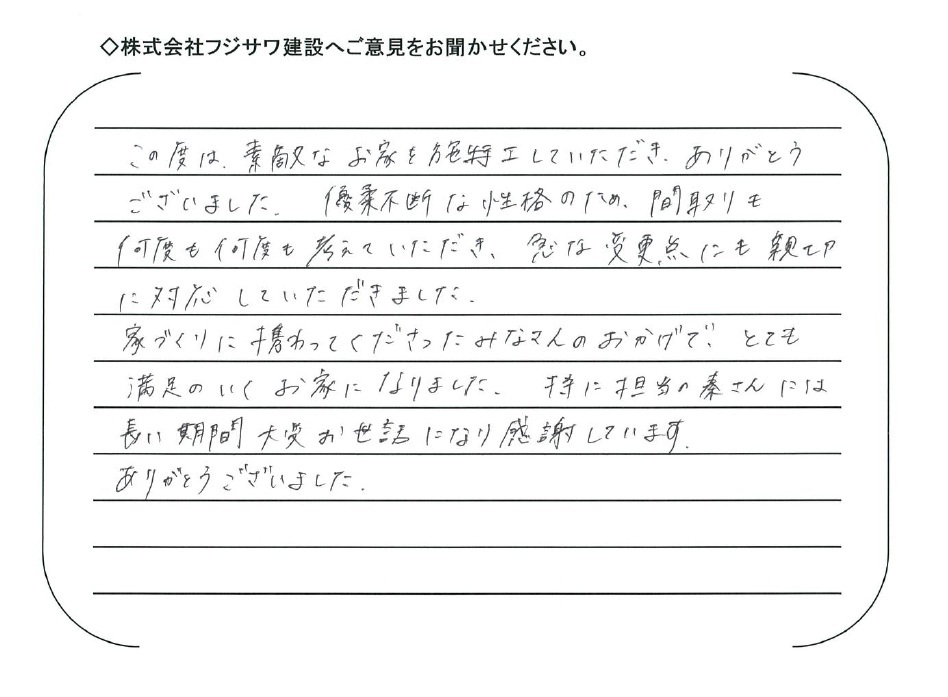 ◇株式会社フジサワ建設へご意見をお聞かせください。
この度は、素敵なお家を施工していただき、ありがとう
ございました。優柔不断な性格のため、間取りも
何度も何度も考えていただき、急な変更点にも親切
に対応していただきました。
家づくりに携わってくださったみなさんのおかげで、とても
満足のいくお家になりました。特に担当の秦さんには
長い期間大変お世話になり感謝しています。
ありがとうございました。